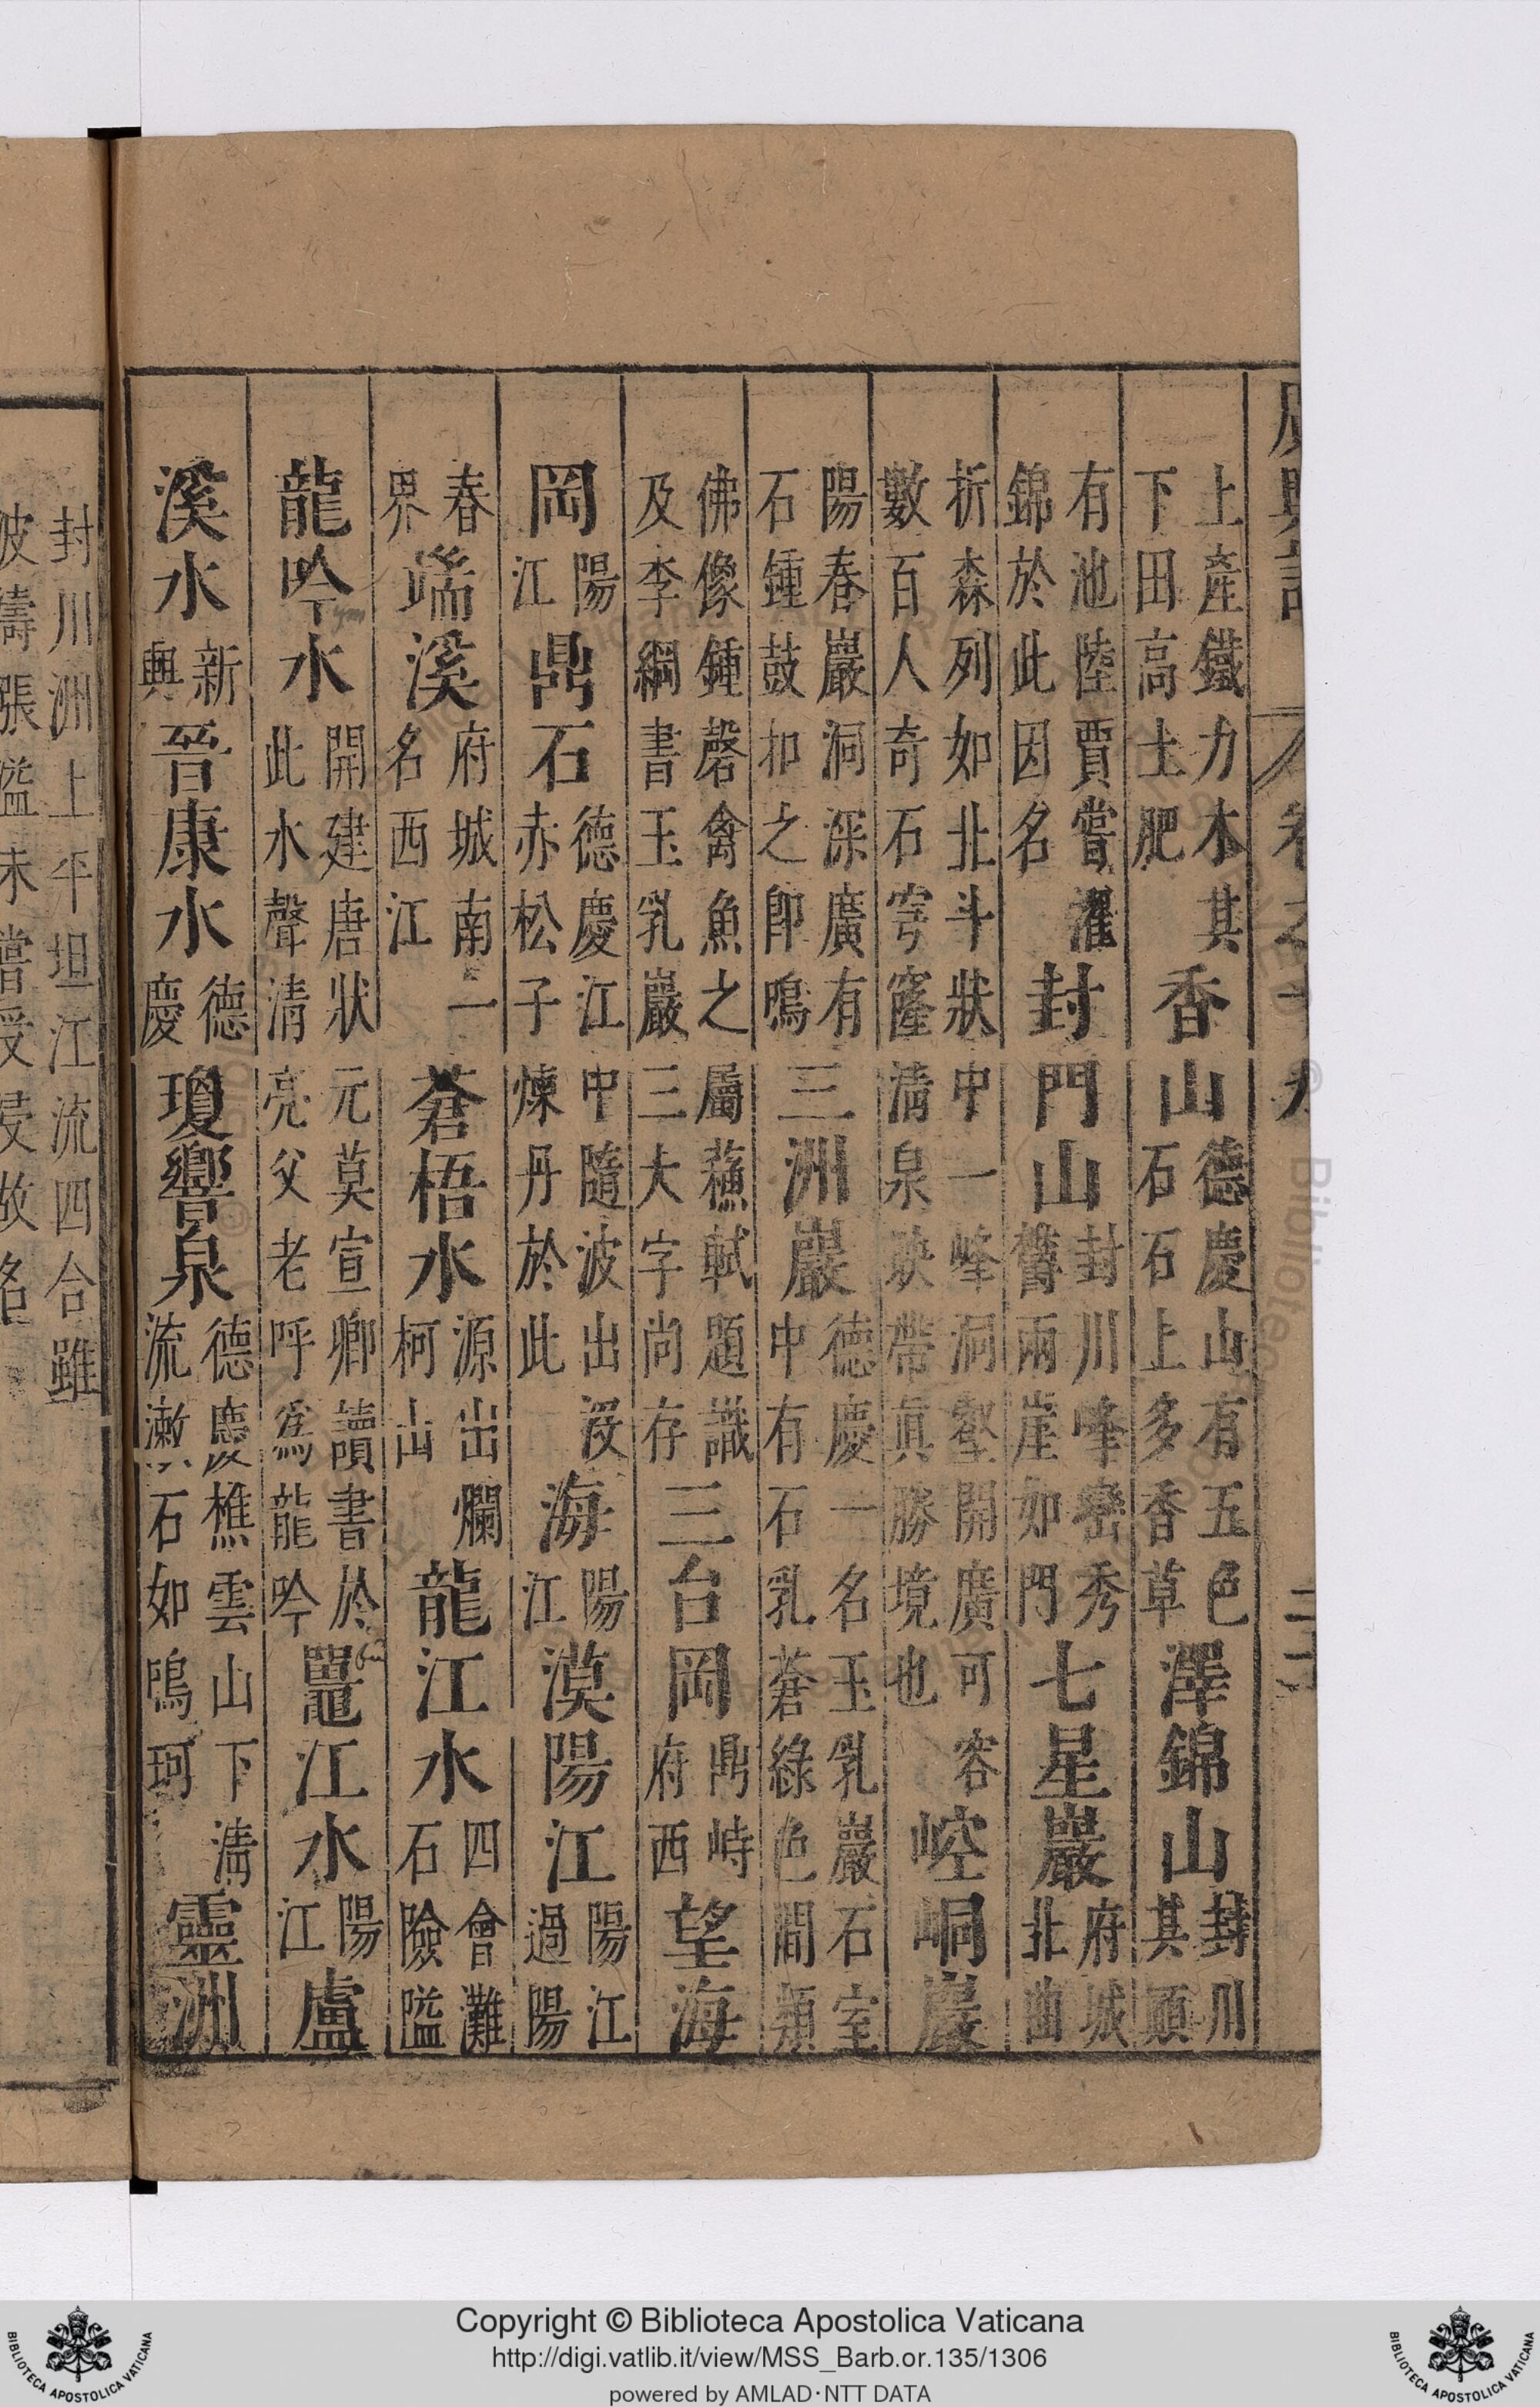 廣輿記 卷之十九
上產鐵力木其下田高土肥 香山 德慶山有五色石石上多香草 澤錦山 封川其頂
有池陸賈嘗濯錦於此因名 封門山 封川峰巒秀聳兩崖如門 七星巖 府城北曲
折森列如北斗狀中一峰洞壑開廣可容數百人奇石穹窿清泉映帶眞勝境也 崆峒巖
陽春巖洞深廣有石鍾鼓扣之即鳴 三洲巖 德慶一名玉乳巖石室中有石乳蒼綠色間類
佛像鍾磬禽魚之屬蘓軾題識及李綱書玉乳巖三大字尚存 三台岡 鼎峙府西 望海
岡 陽江 鼎石 德慶江中隨波出沒赤松子煉丹於此 海 陽江 漠陽江 陽江過陽
春界 端溪 府城南一名西江 蒼梧水 源出爛柯山 龍江水 四會灘石險隘
龍吟水 開建唐狀元莫宣卿讀書於此水聲清亮父老呼爲龍吟 鼉江水 陽江 盧
溪水 新興 晉康水 德慶 瓊響泉 德慶樵雲山下清流漱石如鳴珂 靈洲
封川洲上平坦江流四合雖
波濤漲溢未嘗受浸故名
Copyright © Biblioteca Apostolica Vaticana
http://digi.vatlib.it/view/MSS_Barb.or.135/1306
powered by AMLAD·NTT DATA
BIBLIOTECA APOSTOLICA VATICANA
BIBLIOTECA APOSTOLICA VATICANA